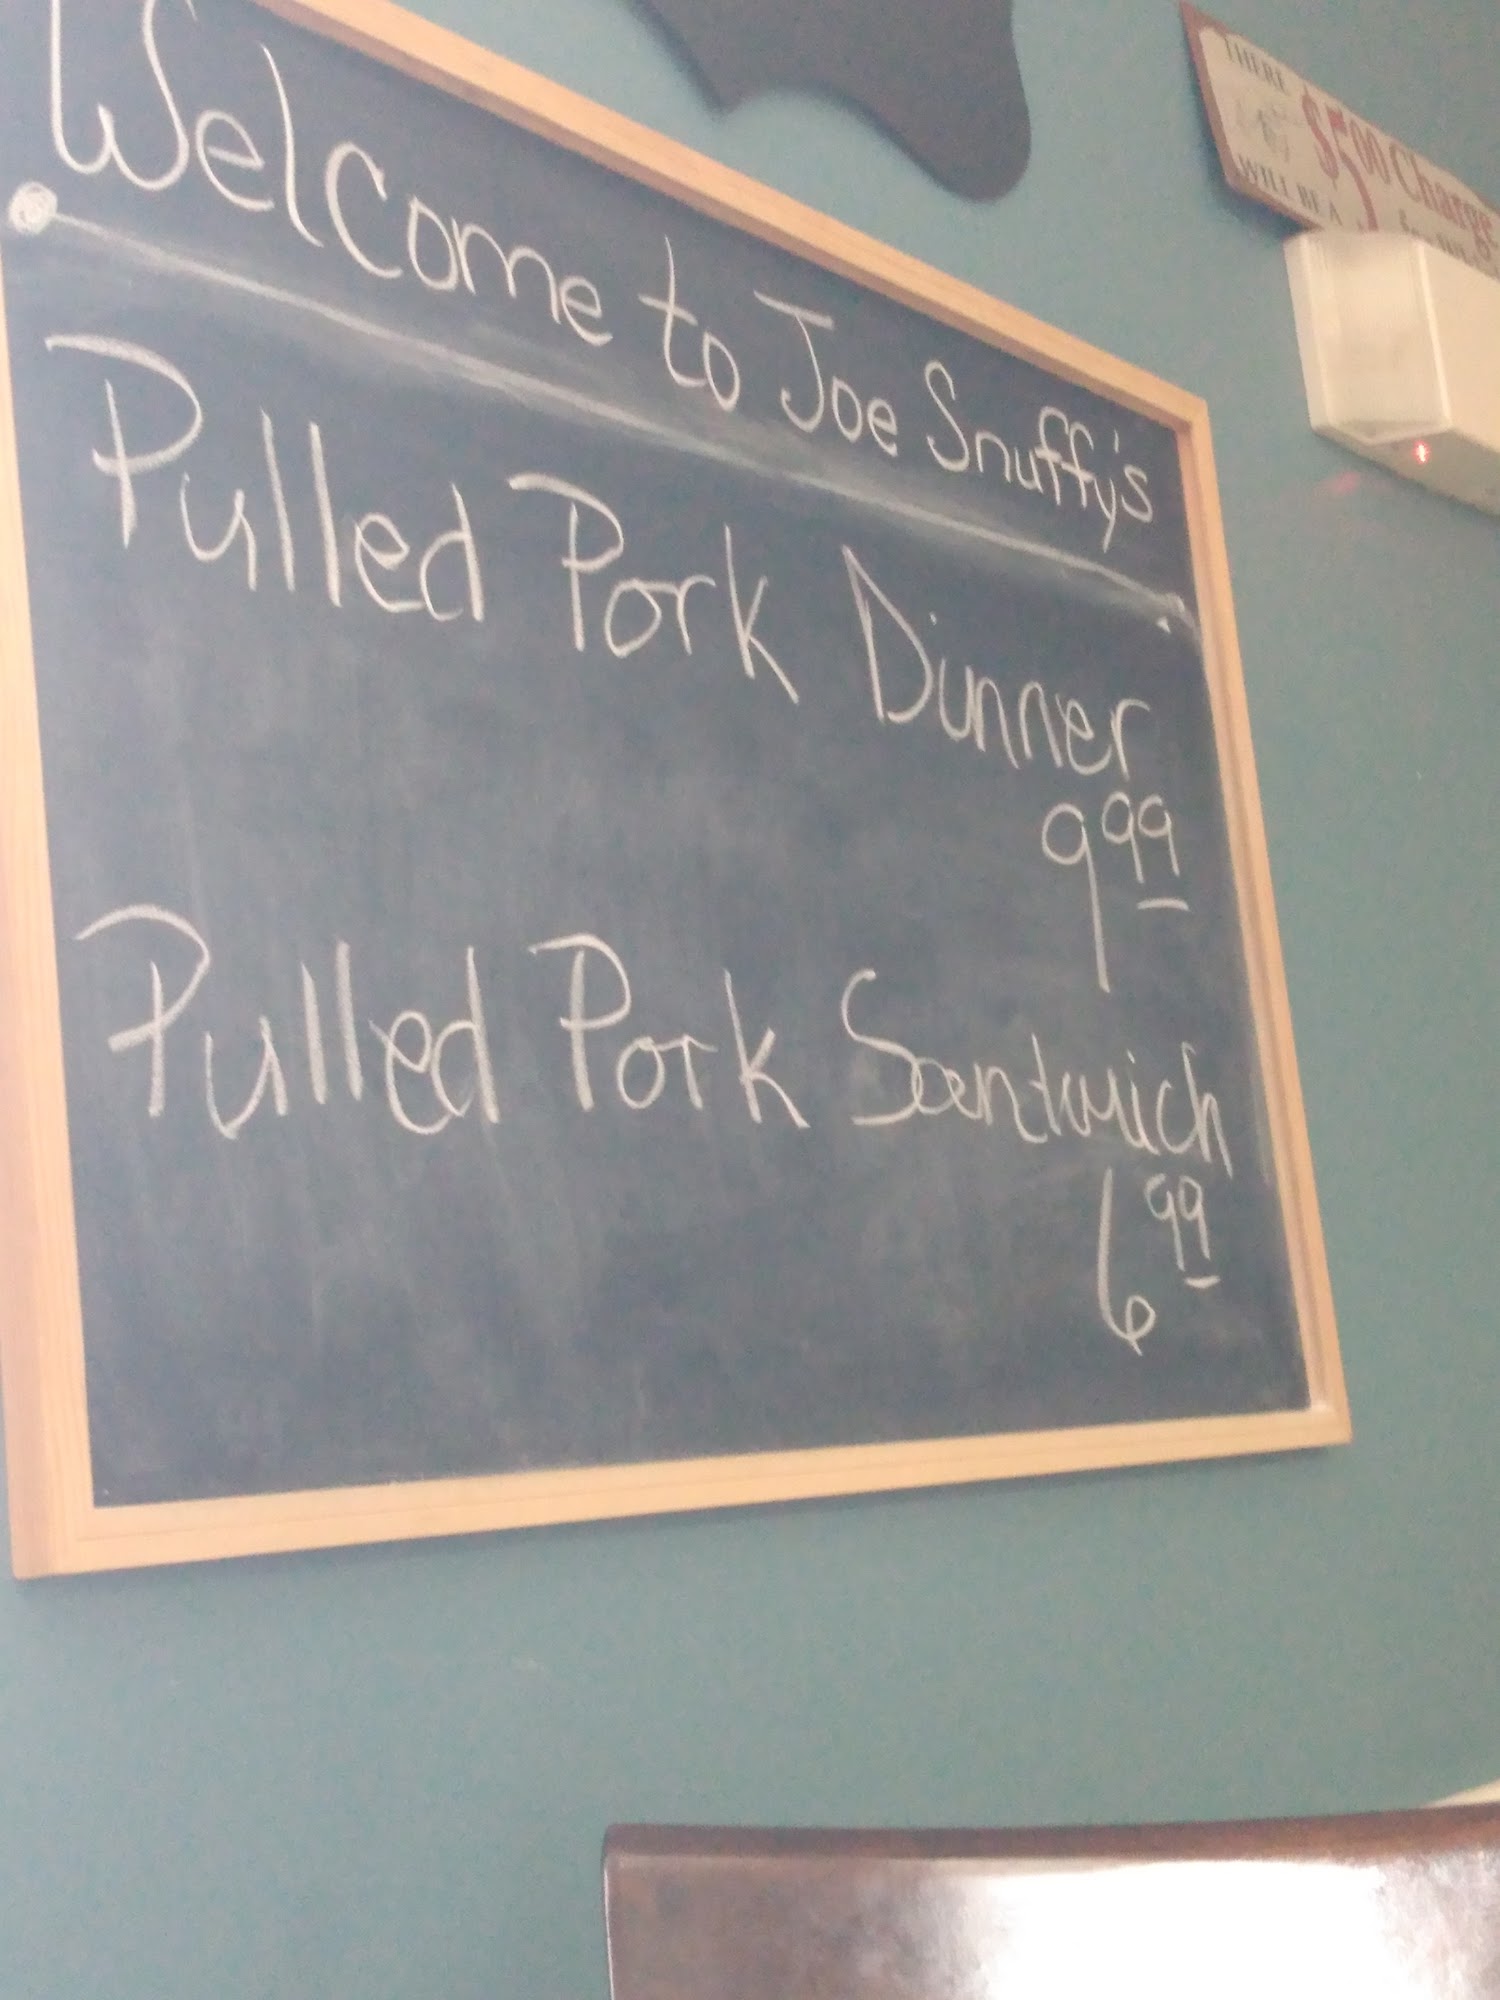 Welcome to Joe Snuffy's
Pulled Pork Dinner
9.99
Pulled Pork Santwich
6.99
THERE
WILL BE A
$5.00 Charge